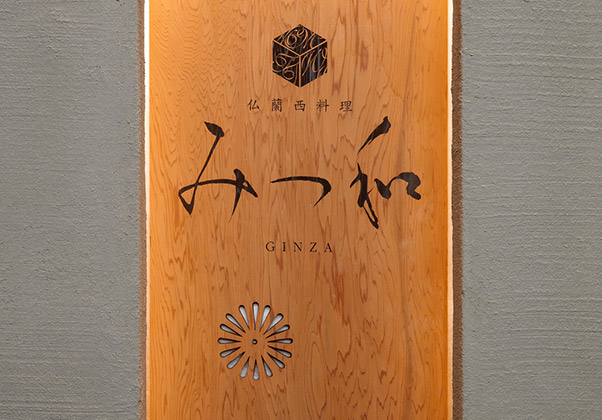 仏蘭西料理
みつ和
GINZA